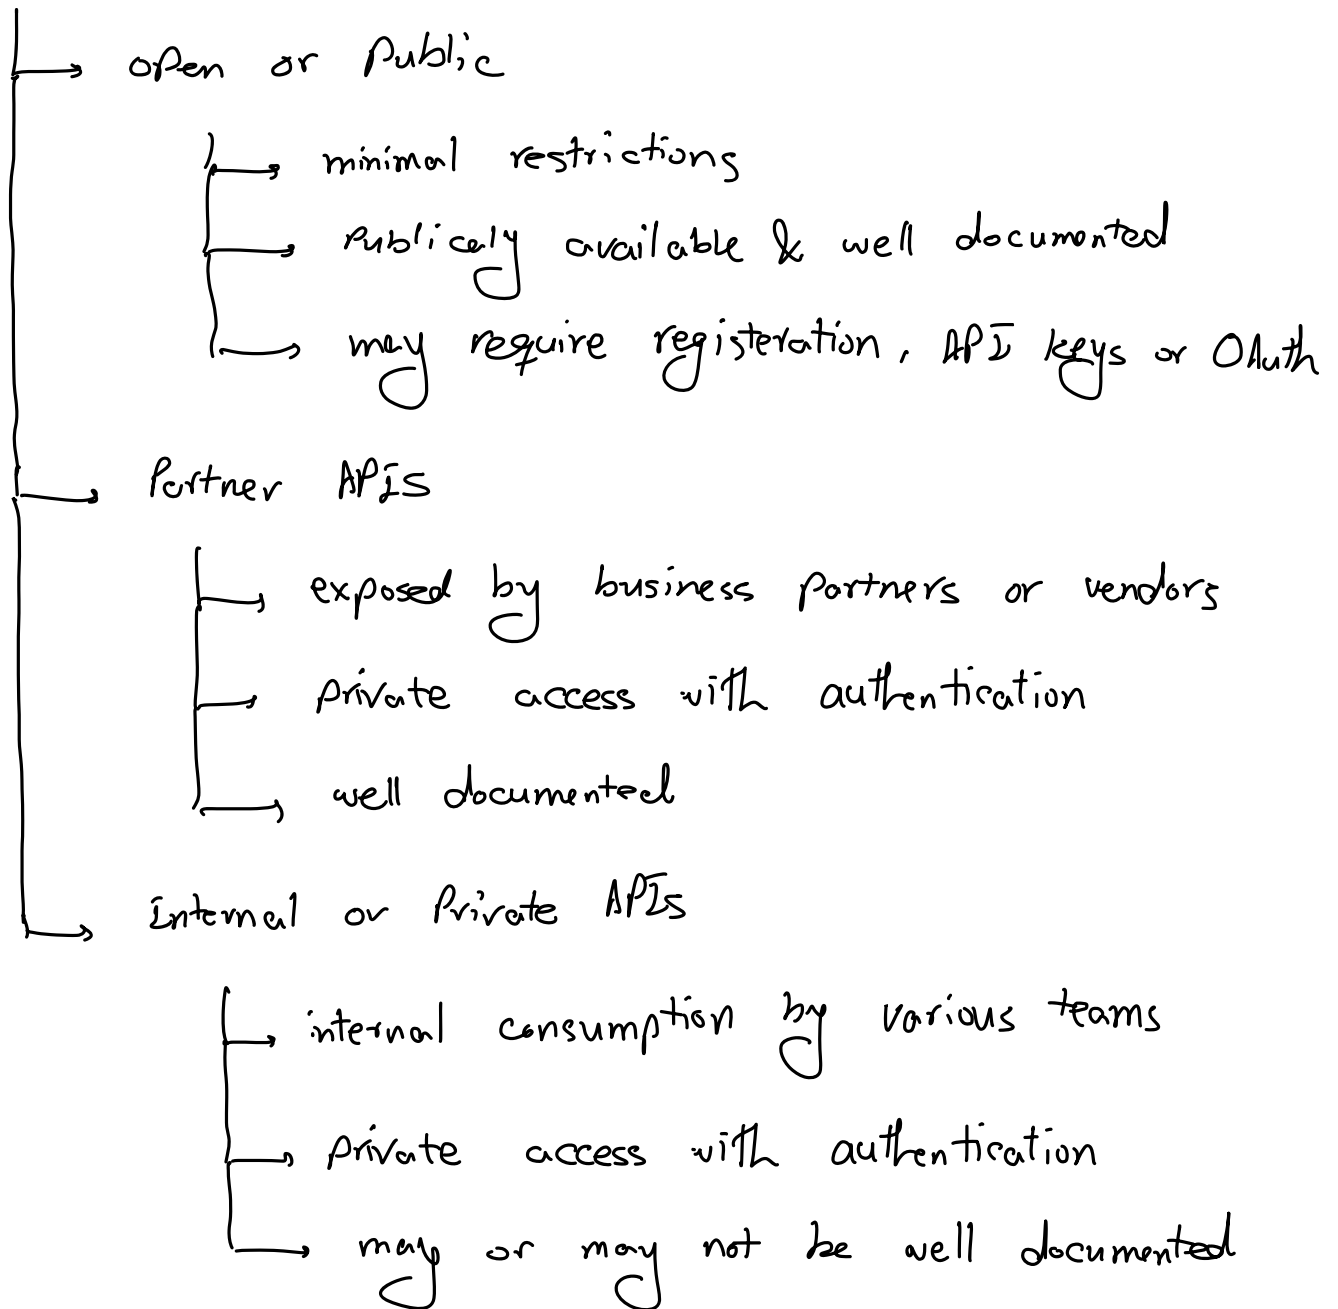 open or Public
minimal restrictions
Publicaly available & well documented
may require registeration, API keys or OAuth
Partner APIs
exposed by business partners or vendors
private access with authentication
well documented
Internal or Private APIs
internal consumption by various teams
private access with authentication
may or may not be well documented